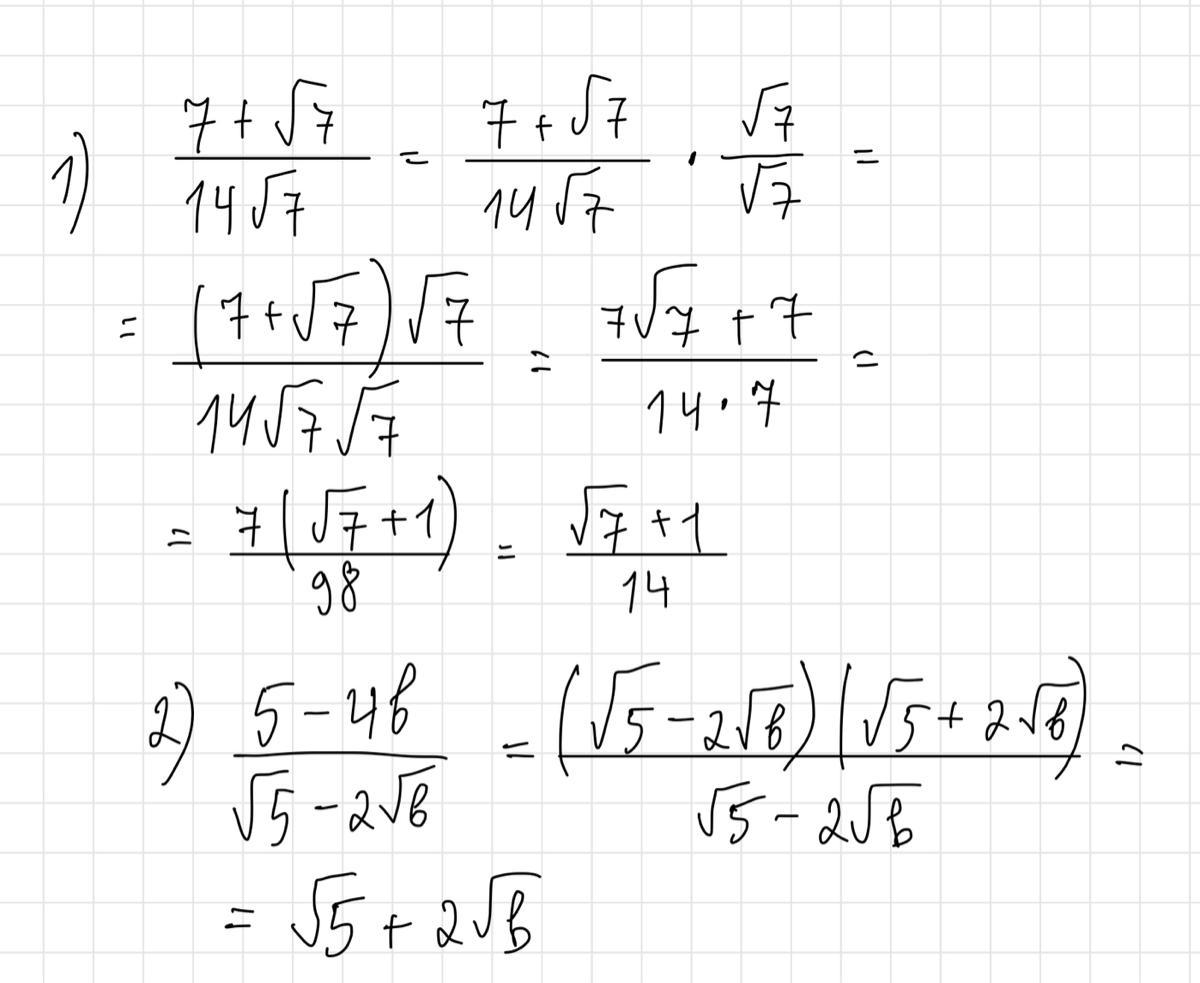 1) (7+√7)/(14√7) = (7+√7)/(14√7) · √7/√7 =
= ((7+√7)√7)/(14√7√7) = (7√7+7)/(14·7) =
= (7(√7+1))/98 = (√7+1)/14
2) (5-4b)/(√5-2√b) = ((√5-2√b)(√5+2√b))/(√5-2√b) =
= √5+2√b